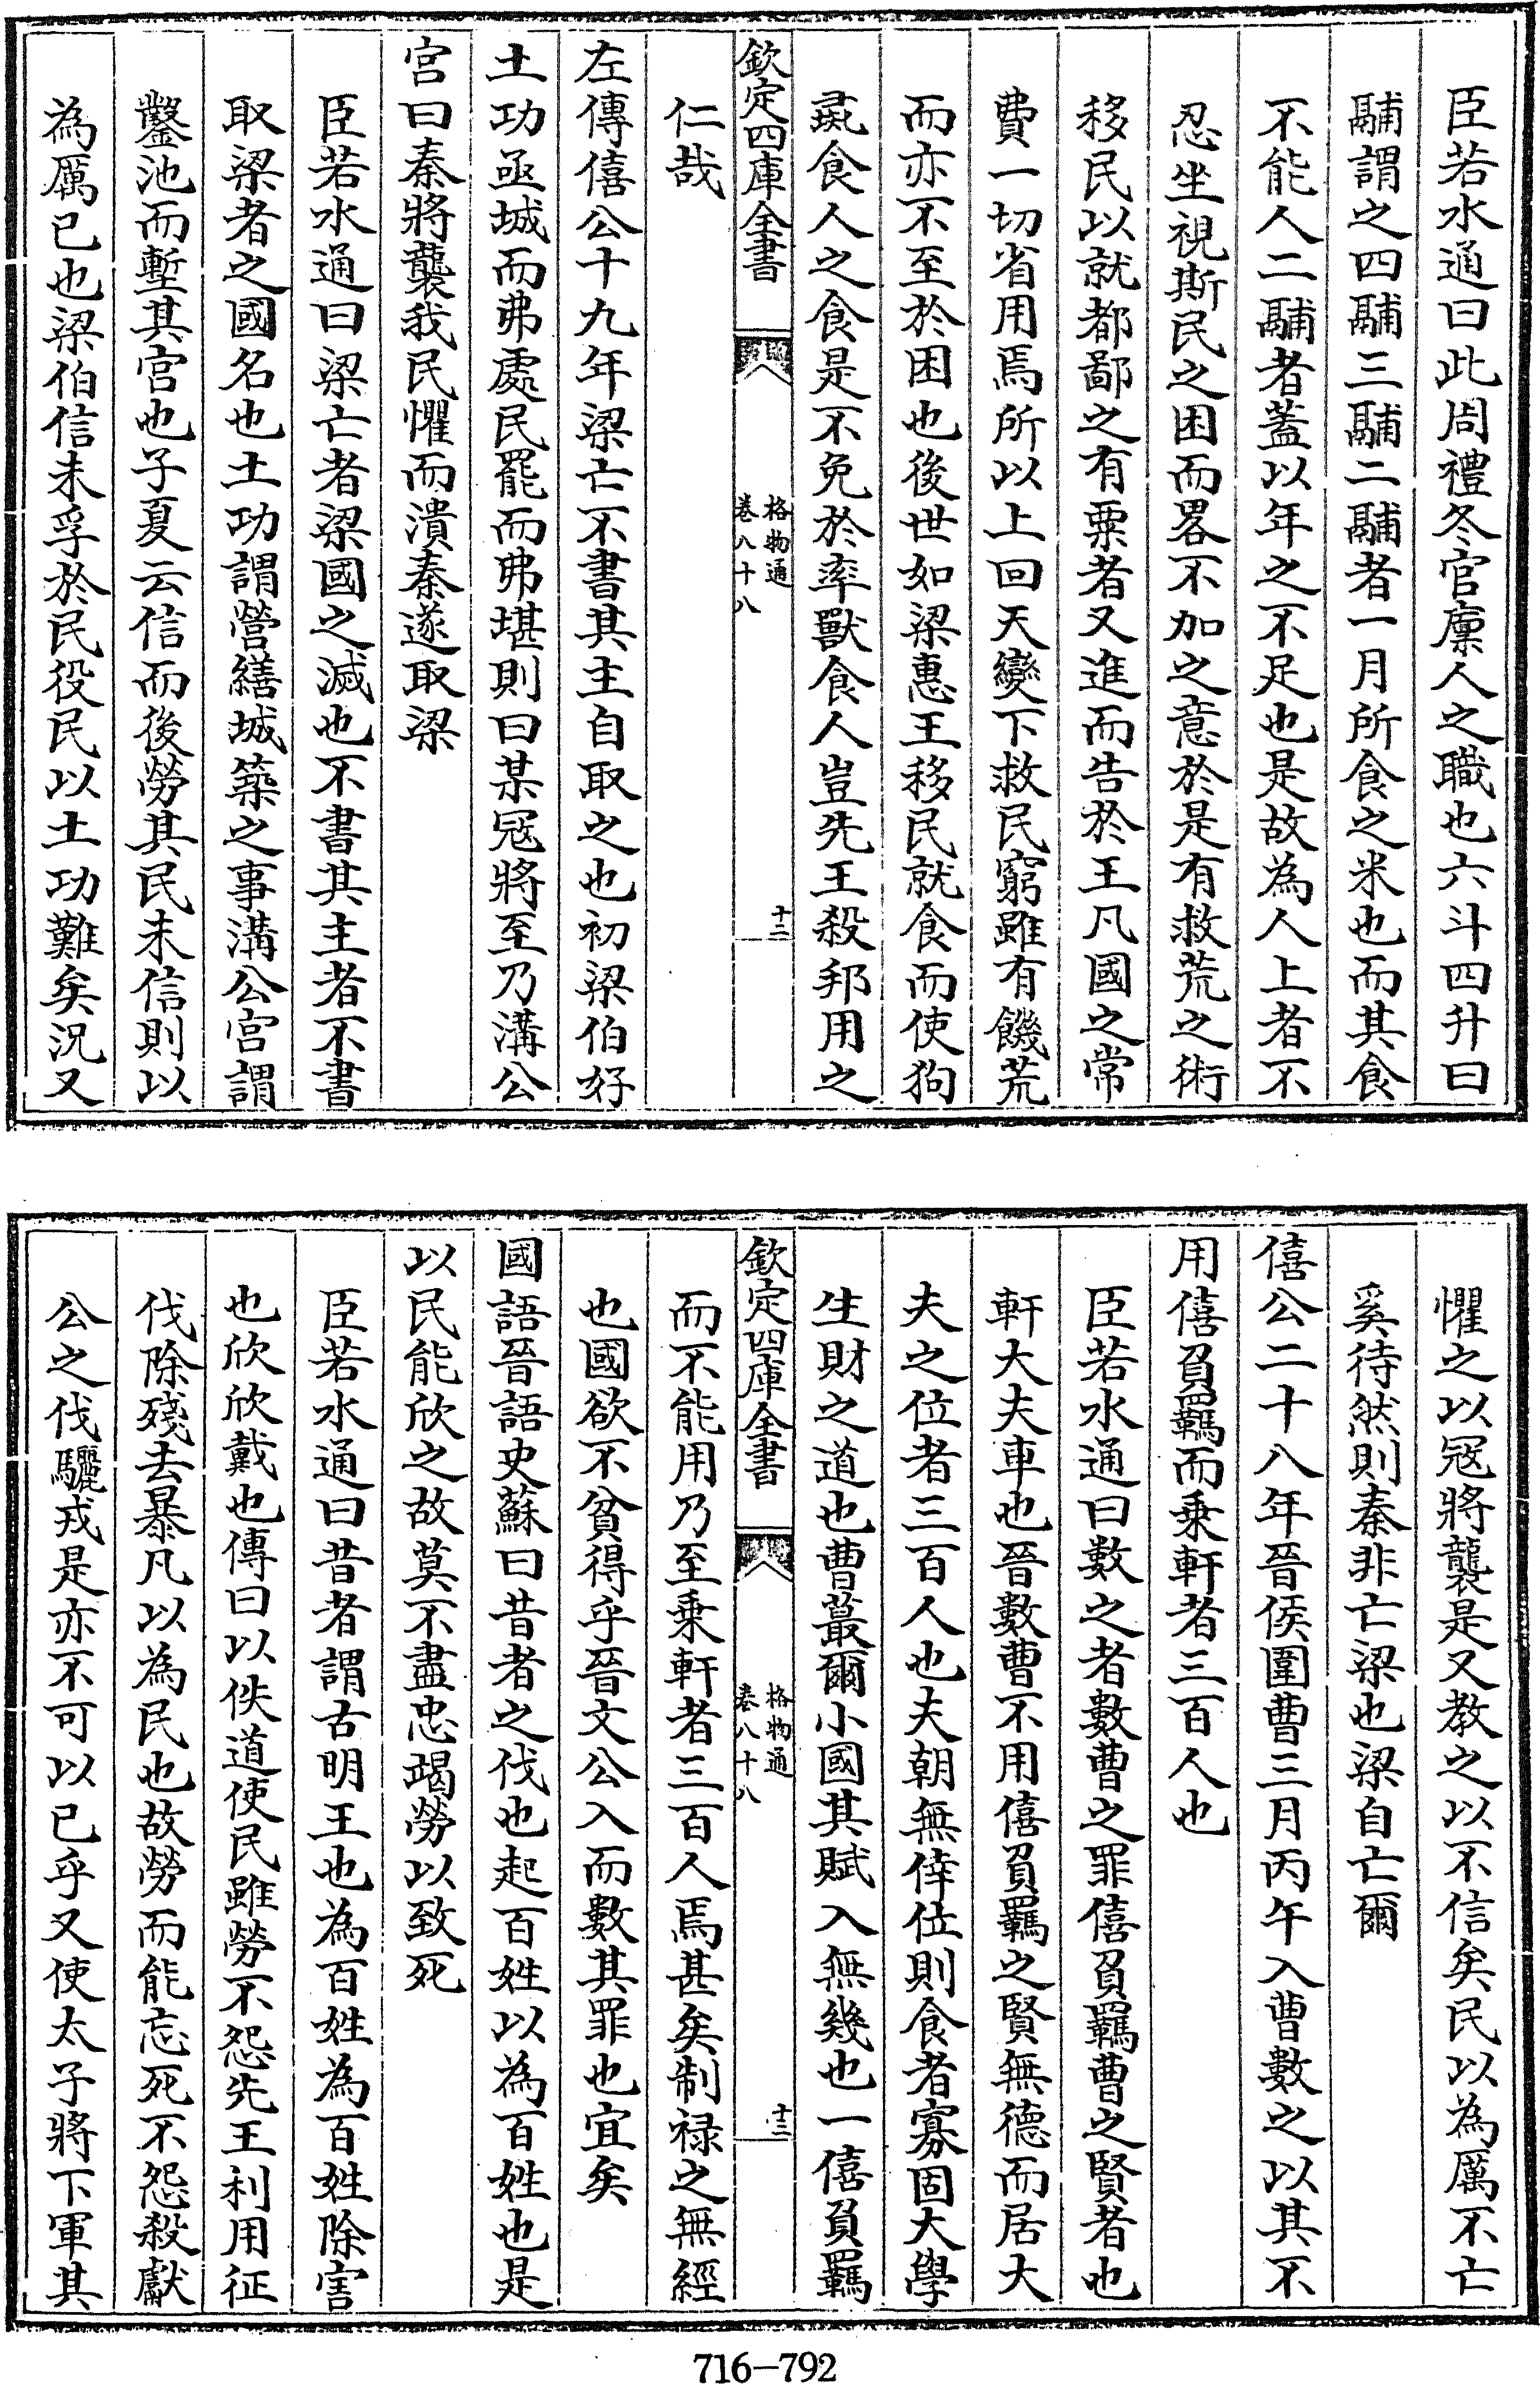 臣若水通曰此周禮冬官廩人之職也六斗四升曰
鬴謂之四鬴三鬴二鬴者一月所食之米也而其食
不能人二鬴者蓋以年之不足也是故為人上者不
忍坐視斯民之困而畧不加之意於是有救荒之術
移民以就都鄙之有粟者又進而告於王凡國之常
費一切省用焉所以上回天變下救民窮雖有饑荒
而亦不至於困也後世如梁惠王移民就食而使狗
彘食人之食是不免於率獸食人豈先王殺邦用之
仁哉
左傳僖公十九年梁亡不書其主自取之也初梁伯好
土功亟城而弗處民罷而弗堪則曰某冦將至乃溝公
宫曰秦將襲我民懼而潰秦遂取梁
臣若水通曰梁亡者梁國之滅也不書其主者不書
取梁者之國名也土功謂營繕城築之事溝公宫謂
鑿池而塹其宫也子夏云信而後勞其民未信則以
為厲已也梁伯信未孚於民役民以土功難矣況又
欽定四庫全書
格物通
卷八十八
十二
懼之以冦將襲是又教之以不信矣民以為厲不亡
奚待然則秦非亡梁也梁自亡爾
僖公二十八年晉侯圍曹三月丙午入曹數之以其不
用僖負羈而乗軒者三百人也
臣若水通曰數之者數曹之罪僖負羈曹之賢者也
軒大夫車也晉數曹不用僖負羈之賢無德而居大
夫之位者三百人也夫朝無倖位則食者寡固大學
生財之道也曹蕞爾小國其賦入無幾也一僖負羈
而不能用乃至乗軒者三百人焉甚矣制禄之無經
也國欲不貧得乎晉文公入而數其罪也宜矣
國語晉語史蘇曰昔者之伐也起百姓以為百姓也是
以民能欣之故莫不盡忠竭勞以致死
臣若水通曰昔者謂古明王也為百姓為百姓除害
也欣欣戴也傳曰以佚道使民雖勞不怨先王利用征
伐除殘去暴凡以為民也故勞而能忘死不怨殺獻
公之伐驪戎是亦不可以已乎又使太子將下軍其
欽定四庫全書
格物通
卷八十八
十三
716-792